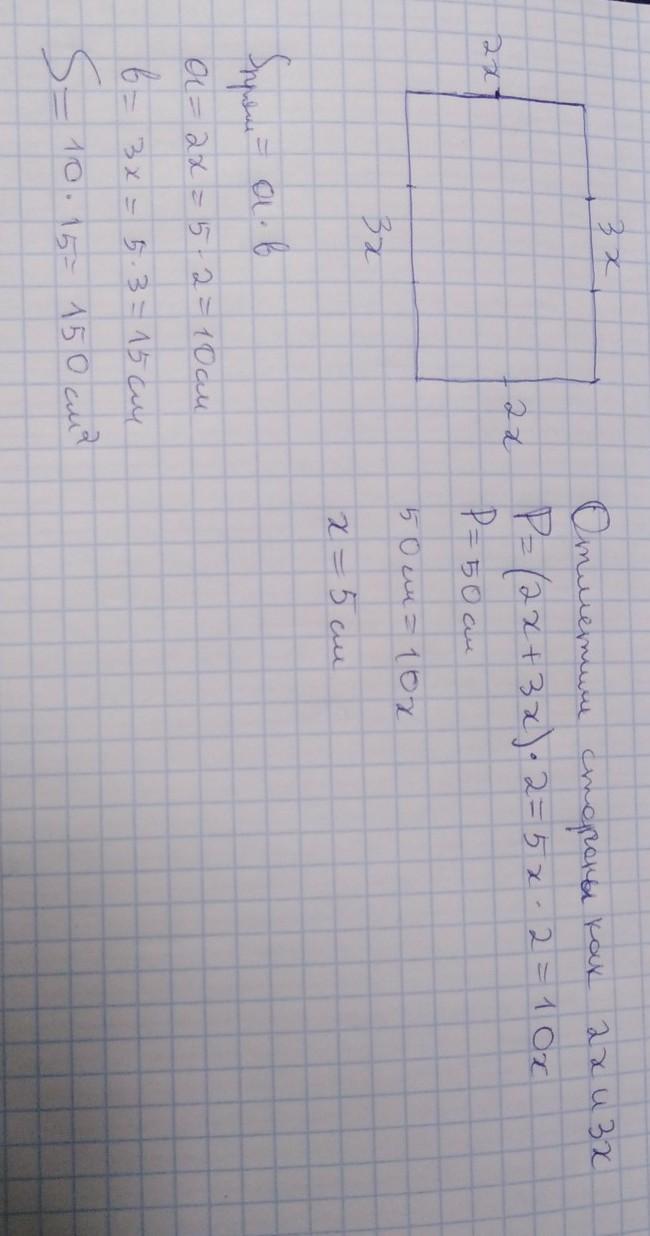 Отметим стороны как 2x и 3x
P = (2x + 3x) · 2 = 5x · 2 = 10x
P = 50 см
50 см = 10x
x = 5 см
3x
2x
2x
3x
Sпрям = a · b
a = 2x = 5 · 2 = 10 см
b = 3x = 5 · 3 = 15 см
S = 10 · 15 = 150 см²